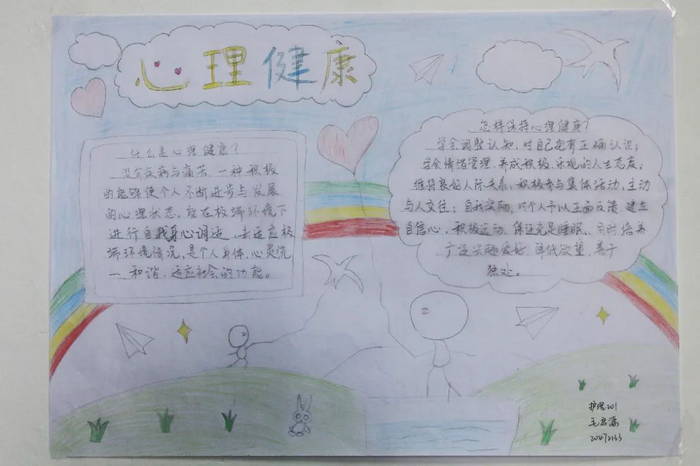 心理健康
什么是心理健康？
没有疾病与痛苦，一种积极
的意识使个人不断进步与发展
的心理状态，能在极端环境下
进行自我身心调适，去适应极
端环境情况，是个人身体、心灵统
一和谐，适应社会的功能。
怎样保持心理健康？
学会调整认知，对自己充有正确认识；
学会情绪管理，养成积极、乐观的人生态度，
维持良好人际关系，积极参与集体活动，主动
与人交往；自我实现，对个人予以正面反馈 建立
自信心，积极运动，保证充足睡眠，
广泛兴趣爱好 降低欲望，善于
独处。
护理201